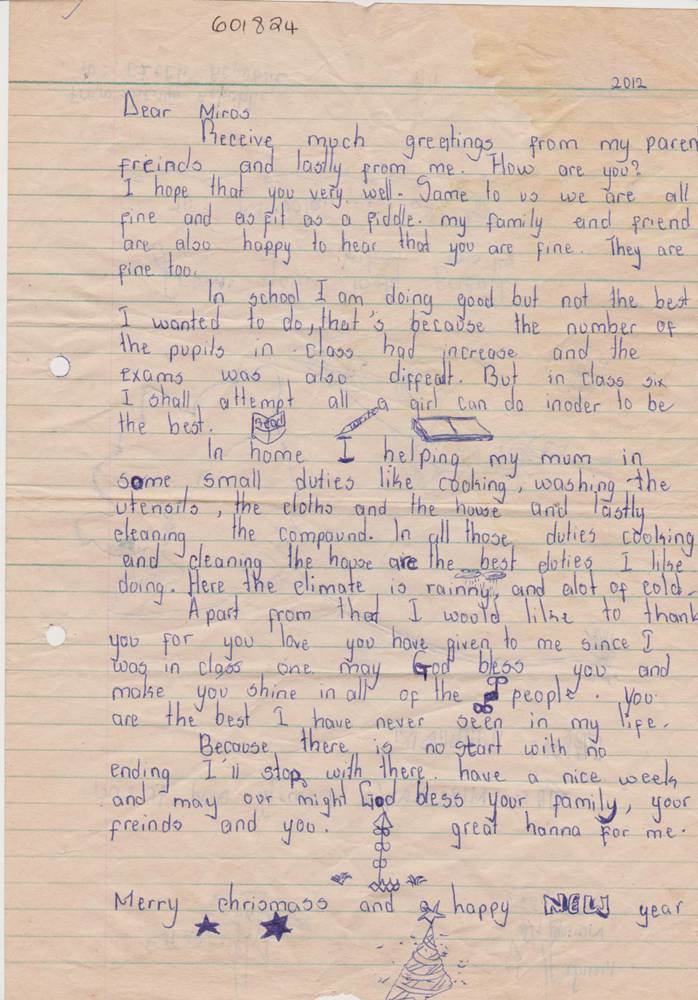 601824
2012
Dear Miros
Receive much greetings from my paren
freinds and lastly from me. How are you?
I hope that you very well. Same to us we are all
fine and as fit as a fiddle. my family and friend
are also happy to hear that you are fine. They are
fine too.
In school I am doing good but not the best
I wanted to do, that's because the number of
the pupils in class had increase and the
exams was also diffealt. But in class six
I shall attempt all a girl can do inoder to be
the best. Read write
In home I helping my mum in
some, small duties like cooking, washing the
utensils, the cloths and the house and lastly
cleaning the compound. In all those duties cooking
and cleaning the house are the best duties I like
doing. Here the climate is rainny, and alot of cold.
Apart from that I would like to thank
you for you love you have given to me since I
was in class one. may God bless you and
make you shine in all of the people. you
are the best I have never seen in my life.
Because there is no start with no
ending I'll stop with there. have a nice week
and may our might God bless your family, your
freinds and you. great hanna for me.
Merry chrismass and a happy NEW year